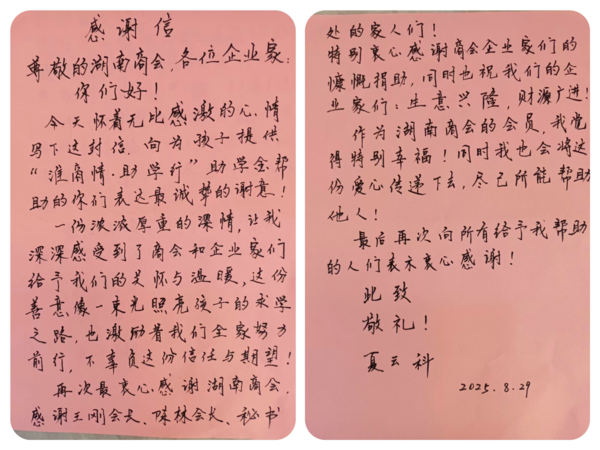 感谢信
尊敬的湖南商会，各位企业家：
你们好！
今天怀着无比感激的心情
写下这封信．向为孩子提供
“淮商情．助学行”助学金帮
助的你们表达最诚挚的谢意！
一份浓浓厚重的深情，让我
深深感受到了商会和企业家们
给予我们的关怀与温暖，这份
善意像一束光照亮孩子的求学
之路，也激励着我们全家努力
前行，不辜负这份信任与期望！
再次最衷心感谢湖南商会，
感谢王刚会长、陈林会长、秘书
处的家人们！
特别衷心感谢商会企业家们的
慷慨捐助，同时也祝我们的企
业家们：生意兴隆，财源广进！
作为湖南商会的会员，我觉
得特别幸福！同时我也会将这
份爱心传递下去，尽己所能帮助
他人！
最后再次向所有给予我帮助
的人们表示衷心感谢！
此致
敬礼！
夏云科
2025.8.29